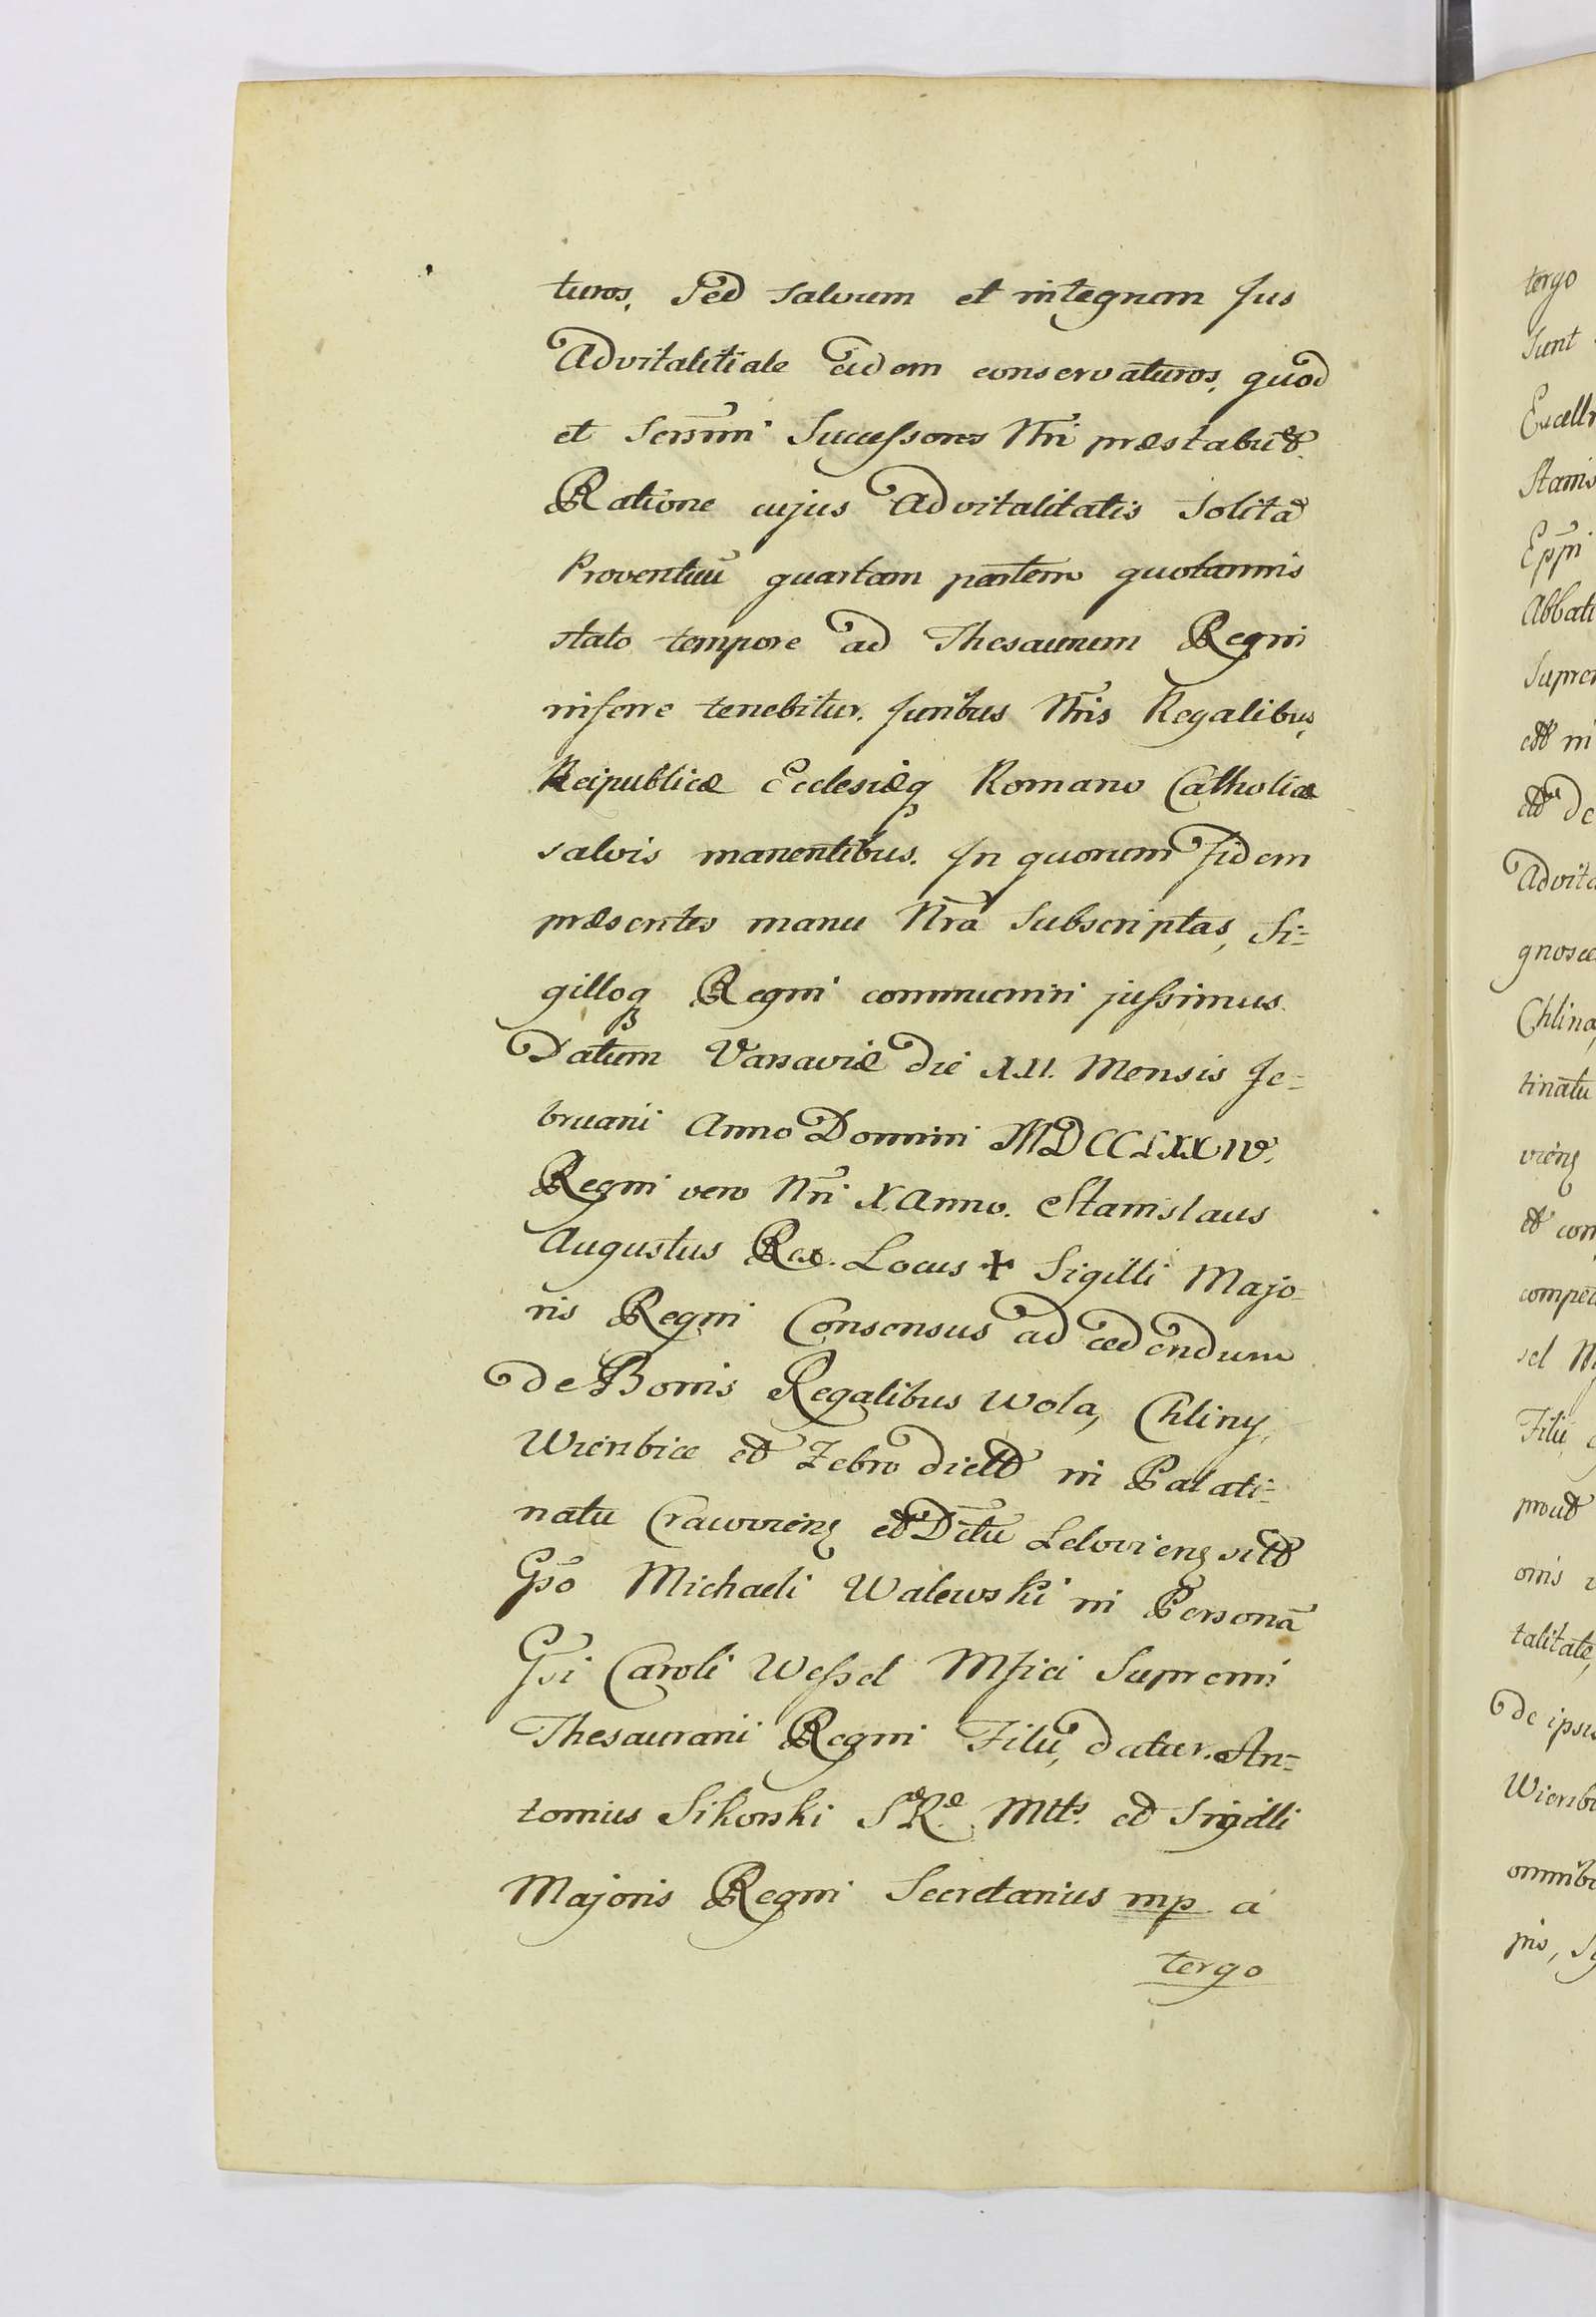 turos, Sed salvum et integrum Jus
Advitalitiale eidem conservaturos, quod
et Serm̃mi Successores Nr̃i præstabũt.
Ratione cujus Advitalitatis Solitã
Proventuũ quartam partem quotannis
stato tempore ad Thesaurum Regni
inferre tenebitur. Juribus Nr̃is Regalibus,
Reipublicæ Ecclesiæq Romano Catholicæ
salvis manentibus. In quorum fidem
præsentes manu Nr̃a Subscriptas, Si=
gilloq Regni communiri jussimus.
Datum Varsaviæ die XII. Mensis Fe=
bruarii Anno Domini MDCCLXXIV.
Regni vero Nr̃i X. Anno. Stanislaus
Augustus Rex. Locus ✝ Sigilli Majo=
ris Regni Consensus ad cedendum
de Bonis Regalibus Wola, Chliny,
Wierbice et Zebro dictt in Palati=
natu Cracovien̄ et Dr̃ctu Lelovien̄ sitt
Gsõ Michaeli Walewski in Personã
Gsi Caroli Wessel Mfici Supremi
Thesaurarii Regni Filii, datur. An=
tonius Sikorski SæRæ Mtts. et Sigilli
Majoris Regni Secretarius mp. a
tergo
tergo
Sunt
Stanis
Abbati
Advita
Chlina
tinatu
Wierbi
de ipsi
talitate,